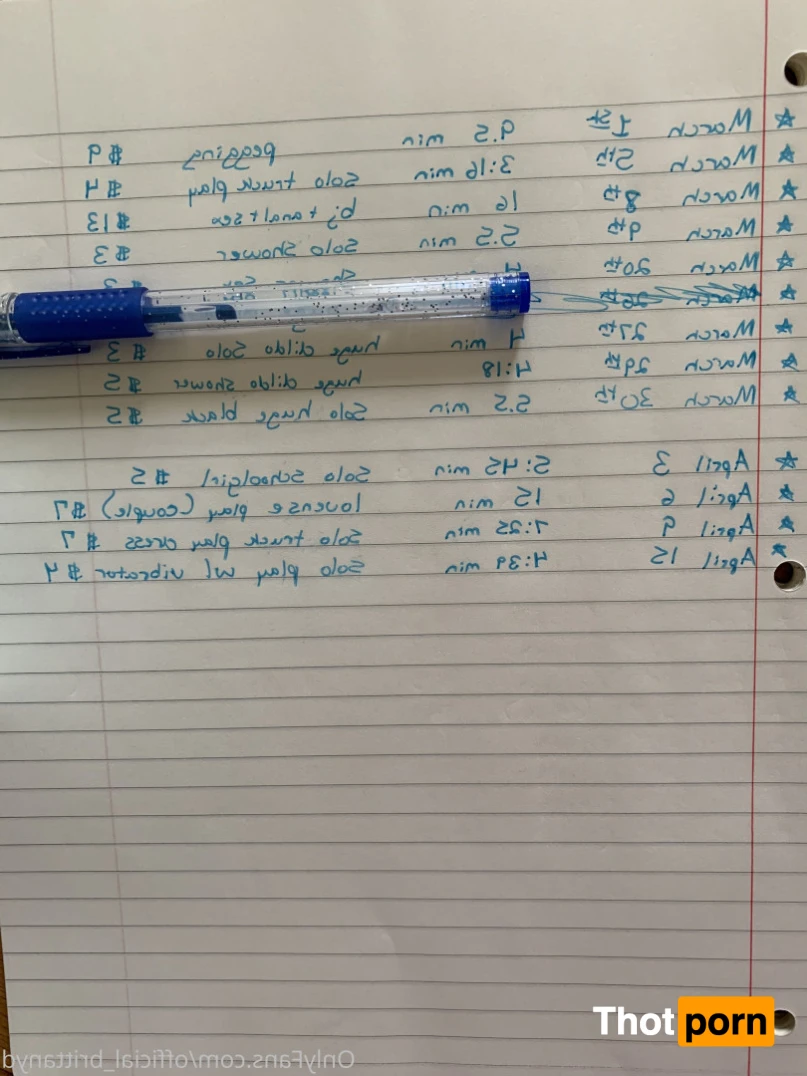 ★ March 1st 9.5 min pegging $9
★ March 5th 3:16 min solo truck play $4
★ March 8th 16 min bj + anal + sex $13
★ March 9th 5.5 min solo shower $3
★ March 20th
★ March
★ March 27th 4 min huge dildo solo $3
★ March 29th 4:18 huge dildo shower $5
★ March 30th 5.5 min solo huge black $5
★ April 3 5:45 min solo schoolgirl $5
★ April 6 15 min lovense play (couple) $7
★ April 9 7:25 min solo truck play dress $7
★ April 15 4:39 min solo play w/ vibrator $4
Thot porn
OnlyFans.com/official_brittanyd